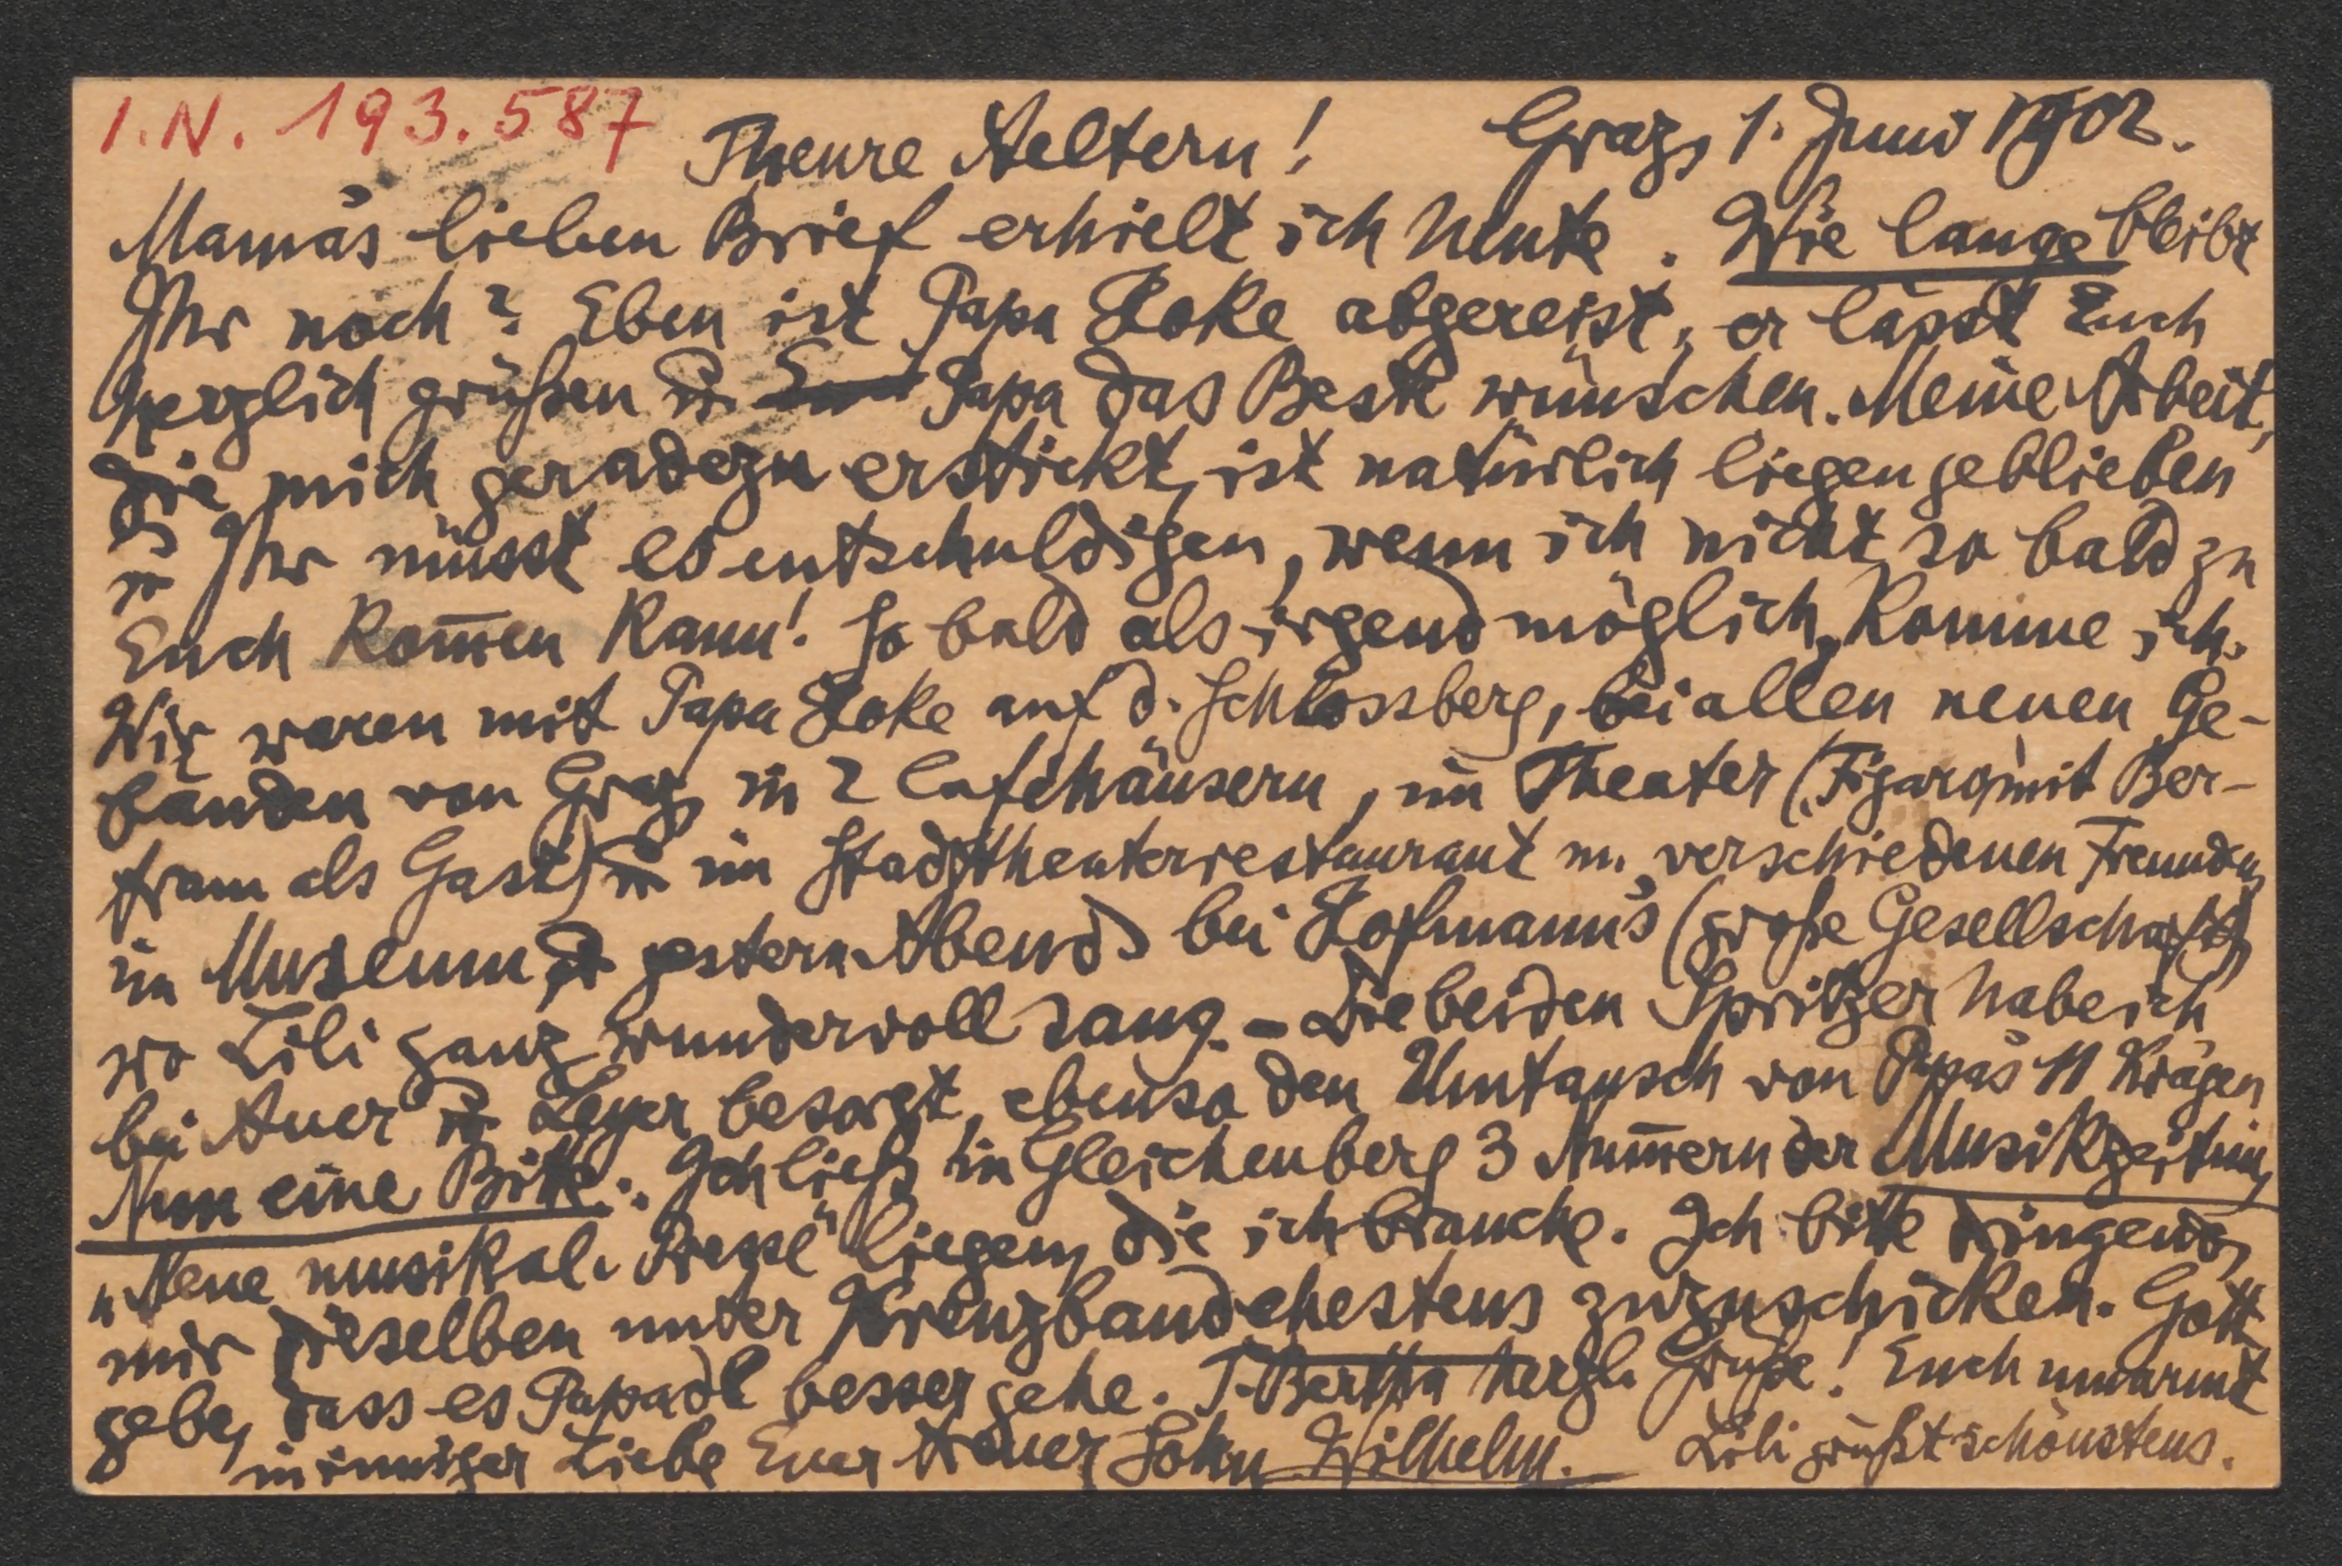 I.N. 193.587
Theure Aeltern! Graz, 1. Juni 1902.
Mama's lieben Brief erhielt ich heute. Wie lange bleibt
Ihr noch? Eben ist Papa Hoke abgereist, er lässt Euch
herzlich grüßen u. Papa das Beste wünschen. Meine Arbeit,
die mich geradezu erstickt, ist natürlich liegen geblieben
u. Ihr müsst es entschuldigen, wenn ich nicht so bald zu
Euch kom̄en kann! So bald als irgend möglich, komme ich.
Wir waren mit Papa Hoke auf d. Schlossberg, bei allen neuen Ge-
bäuden von Graz, in 2 Caféhäusern, im Theater (Figaro, mit Ber-
tram als Gast) u. im Stadttheaterrestaurant m. verschiedenen Freunden,
im Museum u. gestern Abends bei Hofmann's (große Gesellschaft),
wo Lili ganz wundervoll sang. – Die beiden Spritzer habe ich
bei Auer u. Leyer besorgt, ebenso den Umtausch von Papa's 11 Krägen
Nun eine Bitte: Ich ließ in Gleichenberg 3 Num̄ern der Musikzeitung
„Neue musikal. Presse" liegen, die ich brauche. Ich bitte dringend,
mir dieselben unter Kreuzband ehestens zuzuschicken. Gott
gebe, dass es Papadl besser gehe. T. Bertha herzl. Grüße! Euch umarmt
in inniger Liebe Euer treuer Sohn Wilhelm. Lili grüßt schönstens.